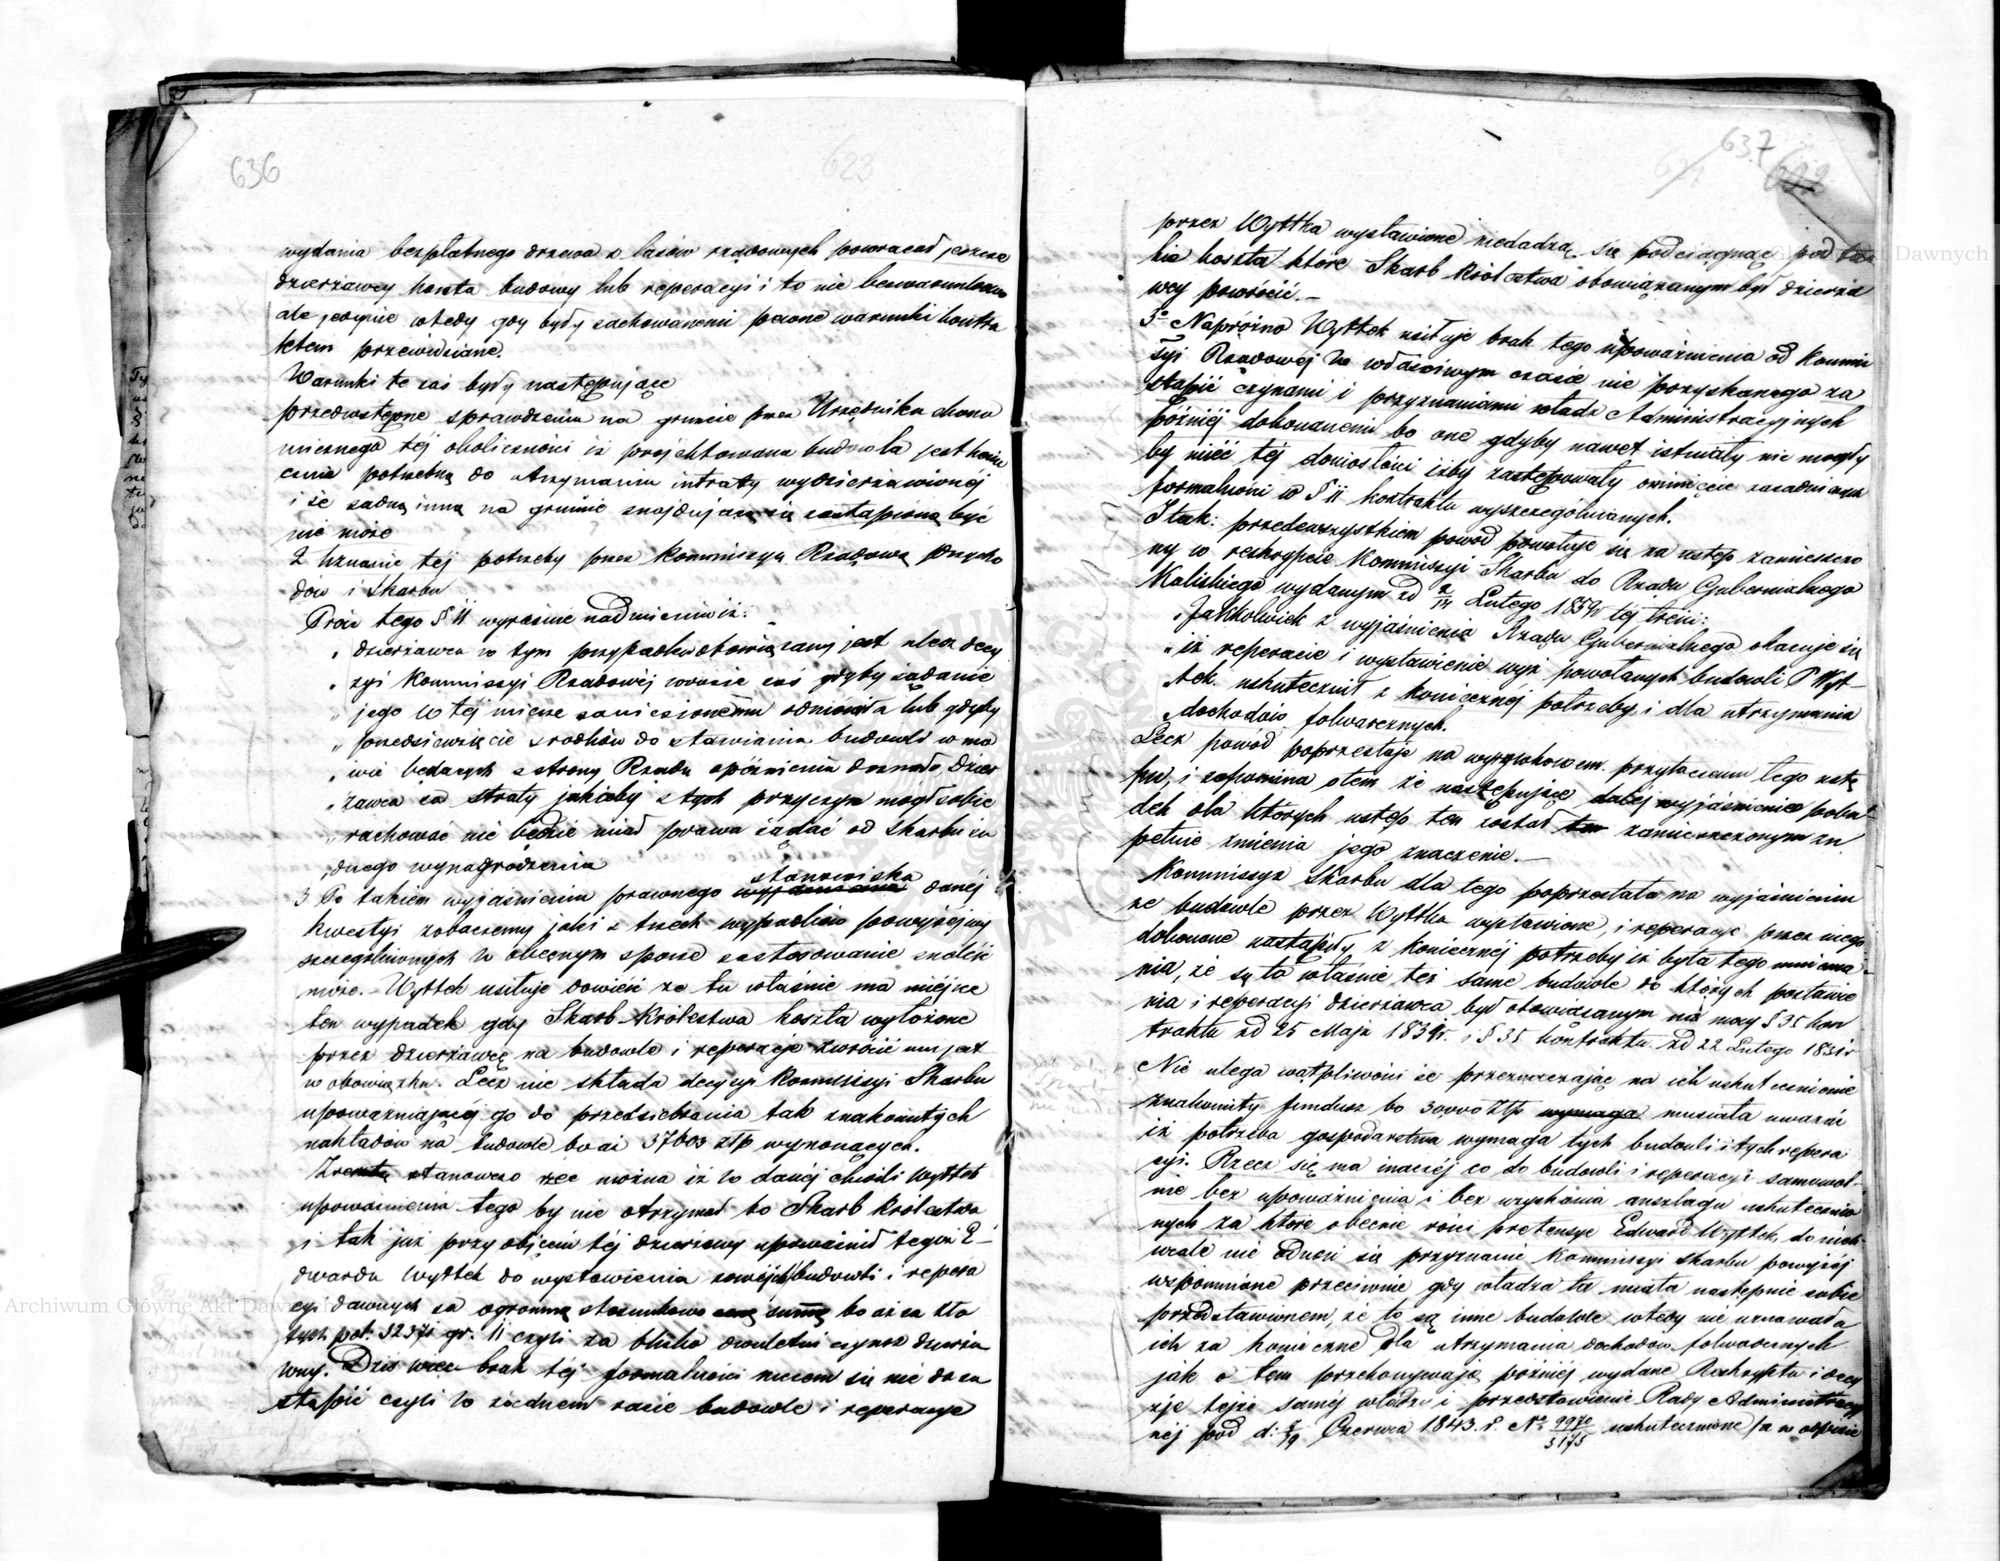 636
623
wydania bezpłatnego drzewa z lasów rządowych powracał jeszcze
dzierżawcy koszta budowy lub reperacyi i to nie bezwarunkowo
ale jedynie wtedy gdy były zachowanemi pewne warunki kontra
ktem przewidziane.
Warunki te zaś były następujące
przedwstępne sprawdzenie na gruncie przez Urzędnika ekono
micznego tej okoliczności iż projektowana budowla jest konie
cznie potrzebną do otrzymania intraty wydzierżawionéj
i że żadną inną na gruncie znajdującą się zastąpioną być
nie może
2 Uznanie tej potrzeby przez Kommissyą Rządową Przycho
dów i Skarbu
Prócz tego § 11 wyraźnie nadmienia iż:
„ dzierżawca w tym przypadku obowiązany jest uledz decy
„ zyi Kommissyi Rządowéj wrazie zaś gdyby żądanie
„ jego w téj mierze zaniesionemu odmówiła lub gdyby
„ przedsiewzięcie srodków do stawiania budowli w mo
„ wie będących z strony Rządu opóźnienia doznało, dzier
„ żawca za straty jakieby z tych przyczyn mogł sobie
„ rachować nie będzie miał prawa żądać od Skarbu ża
„ dnego wynagrodzenia
stanowiska
3 Po takiem wyjaśnieniu prawnego wyjaśnienia danéj
kwestyi zobaczemy jaki z trzech wypadków powyżej wy
szczególnionych w obecnym sporze zastosowanie znaleść
może. Wyttek usiłuje dowieść że tu właśnie ma miéjsce
ten wypadek gdy Skarb Królestwa koszta wyłożone
przez dzierżawcę na budowle i reperacje zwrócić mu jest
w obowiązku. Lecz nie składa decyzyi Kommissyi Skarbu
upoważniającéj go do przedsiebrania tak znakomitych
nakładów na budowle bo aż 37603 złp wynoszących.
Zresztą stanowczo rzec można iż w danéj chwili Wyttek
upoważnienia tego by nie otrzymał bo Skarb Królestwa
i tak już przy objęciu téj dzierżawy upoważnił tegoż E-
dwarda Wyttek do wystawienia nowych budowli i repera
cyi dawnych za ogromną stosunkowo cenę summę bo aż za zło
tych pol: 32371 gr. 11 czyli za blisko dwuletni czynsz dzierża
wny. Dziś więc brak téj formalności niczem się nie da za
stąpić czyli w żadnem razie budowle i reperacje
637
622
przez Wyttka wystawione niedadzą się podciągnąć pod ta
kie koszta które Skarb Królestwa obowiązanym był dzierża
wcy powrócić.—
3º Napróżno Wyttek usiłuje brak tego upoważnienia od Kommis
syi Rządowéj w właściwym czasie nie pozyskanego za
stąpić czynami i przyznaniami władz Administracyjnych
poźniéj dokonanemi bo one gdyby nawet istniały nie mogły
by mieć téj doniosłości iżby zastępowały ominięcie zasadniczych
formalności w § 11 kontraktu wyszczególnionych.
I tak: przedewszystkiem powód powołuje się na ustęp zamieszczo
ny w reskrypcie Kommissyi Skarbu do Rządu Gubernialnego
Kaliskiego wydanym zd 2/14 Lutego 1859r téj treści:
„ Jakkolwiek z wyjaśnienia Rządu Gubernialnego okazuje się
„ iż reperacie i wystawienie wyż powołanych budowli P Wyt-
„ tek uskutecznił z koniecznéj potrzeby i dla utrzymania
„ dochodów folwarcznych.
Lecz powód poprzestaje na wyrywkowem przytoczeniu tego ustę
pu, i zapomina otem że następujące daléj wyjaśnienie pobu
dek dla których ustęp ten został ten zamieszczonym zu
pełnie zmienia jego znaczenie.—
Kommissya Skarbu dla tego poprzestała na wyjaśnieniu
że budowle przez Wyttka wystawione, i reperacye przez niego
dokonane nastąpiły z koniecznéj potrzeby iż była tego mniema
nia, że są to własnie też same budowle do których postawie
nia i reperacyi dzierżawca był obowiązanym na mocy § 35 kon
traktu zd 25 Maja 1839r. i § 35 kontraktu zd 22 Lutego 1831r
Nie ulega wątpliwości że przeznaczając na ich uskutecznienie
znakomity fundusz bo 30000 złp wymaga musiała uważać
iż potrzeba gospodarstwa wymaga tych budowli i tych repera
cyi. Rzecz się ma inaczéj co do budowli i reperacyi samowol-
nie bez upoważnienia i bez uzyskania anszlagu uskutecznio
nych za które obecnie rości pretensye Edward Wyttek, do nich
wcale nie odnosi się przyznanie Kommissyi Skarbu powyżéj
wspomnione przeciwnie gdy władza ta miała następnie sobie
przedstawionem, że to są inne budowle wtedy nie uznawała
ich za konieczne dla utrzymania dochodów folwarcznych
jak o tem przekonywają poźniéj wydane Reskrypta i decy
zje tejże saméj władzy i przedstawienie Rady Administracyj
néj pod d: 7/19 Czerwca 1843. r. No 9970/3175 uskutecznione /a w odpisie